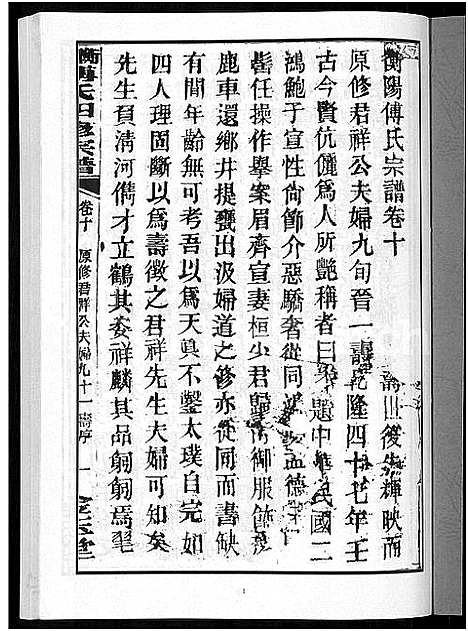 衡陽傅氏宗譜卷十
原修君祥公夫婦九旬晉一壽 乾隆四十七年壬
古今賢伉儷爲人所艷稱者曰 中華民國二 後先輝映而
鴻鮑子宣性尚節介惡驕奢從同 孟德
髻任操作舉案眉齊宣妻桓少君歸 御服飾
鹿車還鄉井提甕出汲婦道之修亦從同而書缺
有間年齡無可考吾以爲天眞不鑿太璞自完如
四人理固斷以爲壽徵之君祥先生夫婦可知矣
先生負清河儁才立鶴其委祥麟其品翩翩焉毣
衡陽傅氏四修宗譜
卷十
原修君祥公夫婦九十一壽序
一